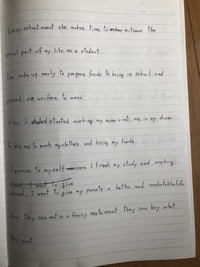 Every school event she makes time to witness the
special part of my life as a student.
She wake up early to prepare foods to bring in school and
prepared our uniform to wear.
When I started working my mama visit me in my dorm
to help me to wash my clothes and bring my foods.
I promise to my self once I finish my study and working
already, I want to give my parents a better and comfortable life.
They can eat in a fancy restaurant they can buy what
they want.